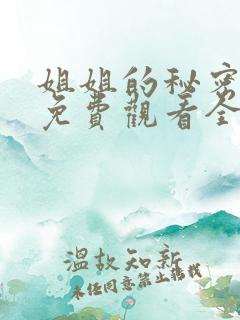 姐姐的秘密
免費觀看全
溫故知新
未经同意禁止转载